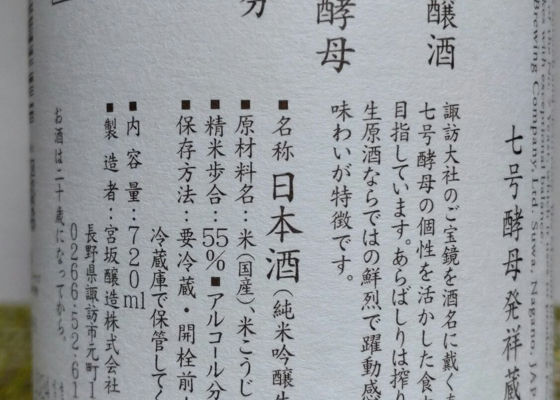 Brewing Company, Ltd. Suwa, Nagano, JAPAN
七号酵母発祥蔵
醸酒
諏訪大社のご宝鏡を酒名に戴く
七号酵母の個性を活かした食
目指しています。あらばしりは搾り
生原酒ならではの鮮烈で躍動感
味わいが特徴です。
酵母
■名称 日本酒(純米吟醸生
■原材料名:米(国産)、米こうじ
■精米歩合:55% ■アルコール分
■保存方法:要冷蔵・開栓前
冷蔵庫で保管して
分
■内容量:720ml
■製造者:宮坂醸造株式会社
長野県諏訪市元町1
0266-52-61
お酒は二十歳になってから。